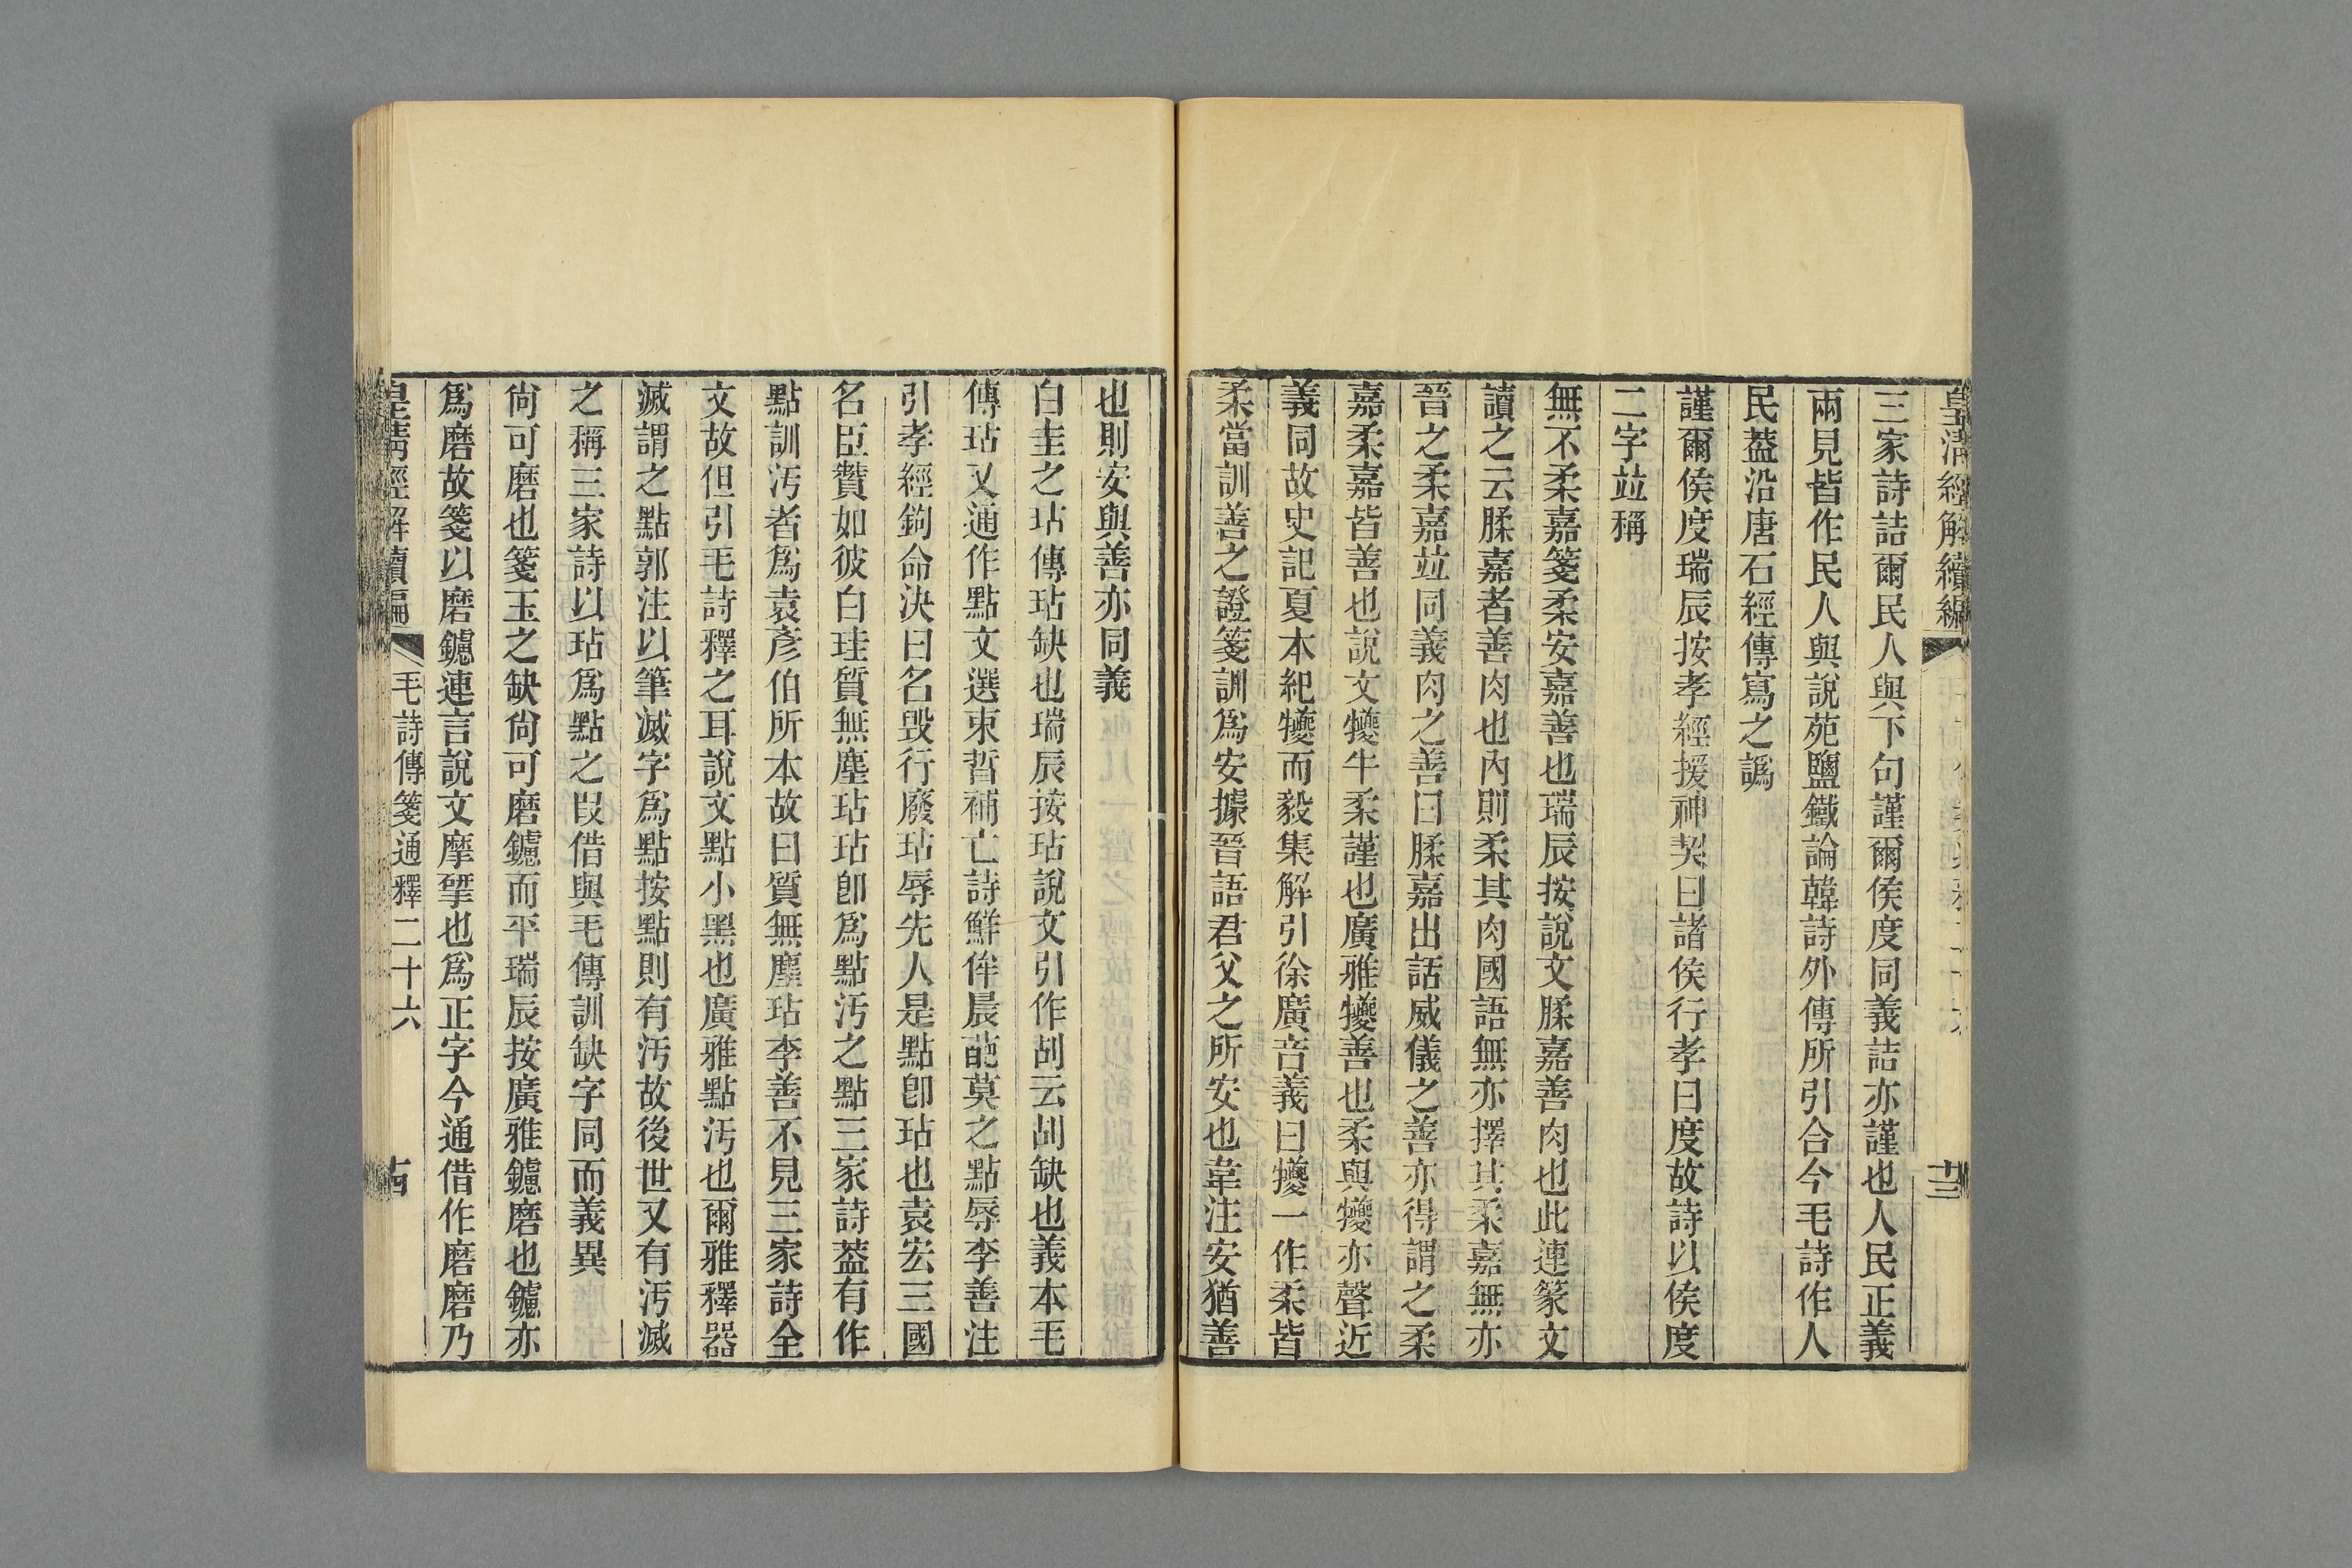 皇清經解續編
十三
三家詩詰爾民人與下句謹爾侯度同義詰亦謹也人民正義
兩見皆作民人與說苑鹽鐵論韓詩外傳所引合今毛詩作人
民蓋沿唐石經傳寫之譌
謹爾侯度瑞辰按孝經援神契曰諸侯行孝曰度故詩以侯度
二字竝稱
無不柔嘉箋柔安嘉善也瑞辰按說文腬嘉善肉也此連篆文
讀之云腬嘉者善肉也內則柔其肉國語無亦擇其柔嘉無亦
晉之柔嘉竝同義肉之善曰腬嘉出話威儀之善亦得謂之柔
嘉柔嘉皆善也說文㹛牛柔謹也廣雅㹛善也柔與㹛亦聲近
義同故史記夏本紀㹛而毅集解引徐廣音義曰㹛一作柔皆
柔當訓善之證箋訓爲安據晉語君父之所安也韋注安猶善
也則安與善亦同義
白圭之玷傳玷缺也瑞辰按玷說文引作㓠云㓠缺也義本毛
傳玷又通作點文選束晳補亡詩鮮侔晨葩莫之點辱李善注
引孝經鉤命決曰名毀行廢玷辱先人是點卽玷也袁宏三國
名臣贊如彼白珪質無塵玷玷卽爲點汚之點三家詩葢有作
點訓汚者爲袁彥伯所本故曰質無塵玷李善不見三家詩全
文故但引毛詩釋之耳說文點小黑也廣雅點汚也爾雅釋器
滅謂之點郭注以筆滅字爲點按點則有汚故後世又有汚滅
之稱三家詩以玷爲點之叚借與毛傳訓缺字同而義異
尙可磨也箋玉之缺尙可磨鑢而平瑞辰按廣雅鑢磨也鑢亦
爲磨故箋以磨鑢連言說文摩揅也爲正字今通借作磨磨乃
皇清經解續編
毛詩傳箋通釋二十六
十四